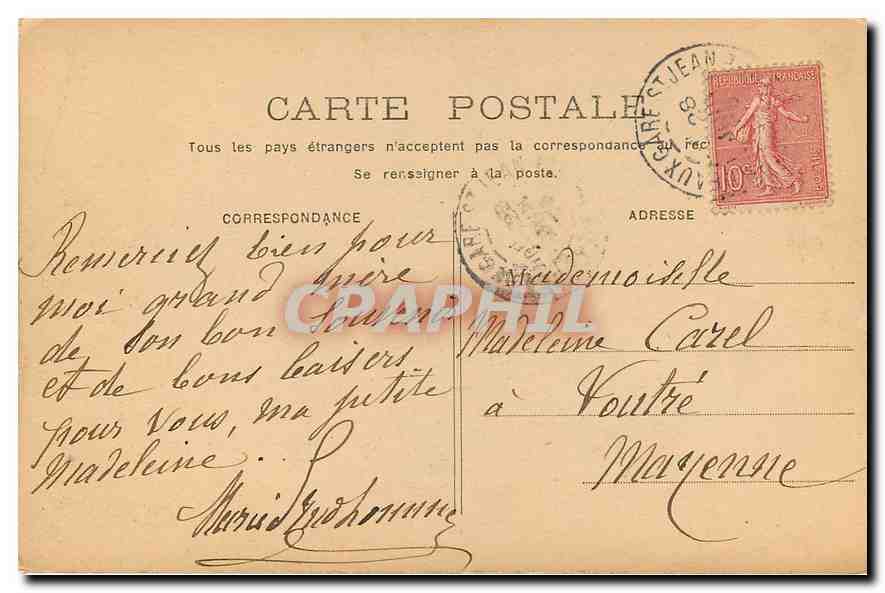 CARTE POSTALE
Tous les pays étrangers n'acceptent pas la correspondance au rec
Se renseigner à la poste.
CORRESPONDANCE
ADRESSE
Remerciez bien pour
moi grand mère
de son bon souvenir
et de bons baisers
pour vous, ma petite
Madeleine.
Marie Prudhomme
Mademoiselle
Madeleine Carel
à Voutré
Mayenne
REPUBLIQUE FRANÇAISE
10
GARE ST JEAN
GARE ST JEAN
CRAPHIL